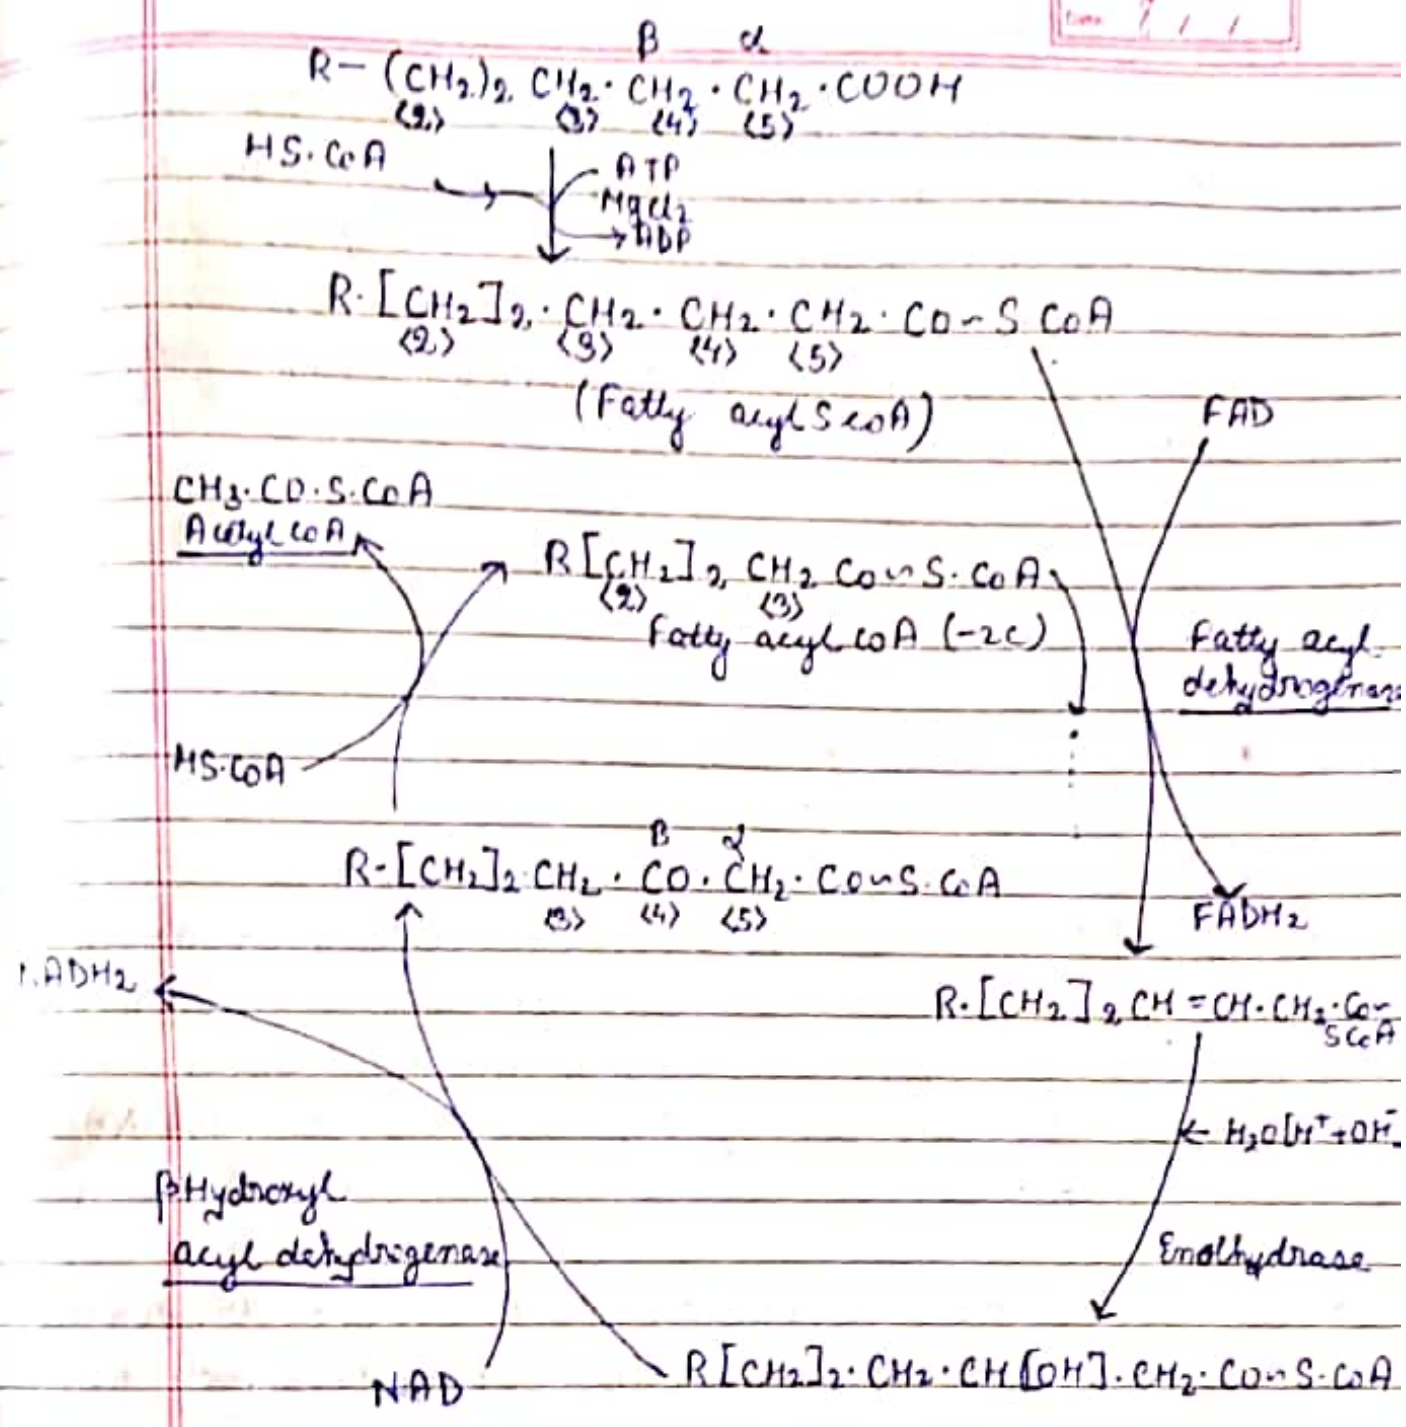 Date / / /
β α
R-(CH₂)₂ CH₂·CH₂·CH₂·COOH
<2> <3> <4> <5>
HS·CoA
ATP
MgCl₂
ADP
R·[CH₂]₂·CH₂·CH₂·CH₂·CO~S CoA
<2> <3> <4> <5>
(Fatty acyl S coA)
FAD
CH₃·CO·S·CoA
Acetyl coA
R[CH₂]₂ CH₂ CO~S·CoA
<2> <3>
Fatty acyl coA (-2C)
Fatty acyl
dehydrogenase
HS·CoA
β α
R-[CH₂]₂·CH₂·CO·CH₂·CO~S·CoA
<3> <4> <5>
FADH₂
NADH₂
R·[CH₂]₂ CH=CH·CH₂·CO~
SCoA
← H₂O[H⁺+OH⁻]
β Hydroxyl
acyl dehydrogenase
Enolhydrase
R[CH₂]₂·CH₂·CH[OH]·CH₂·CO~S·CoA
NAD